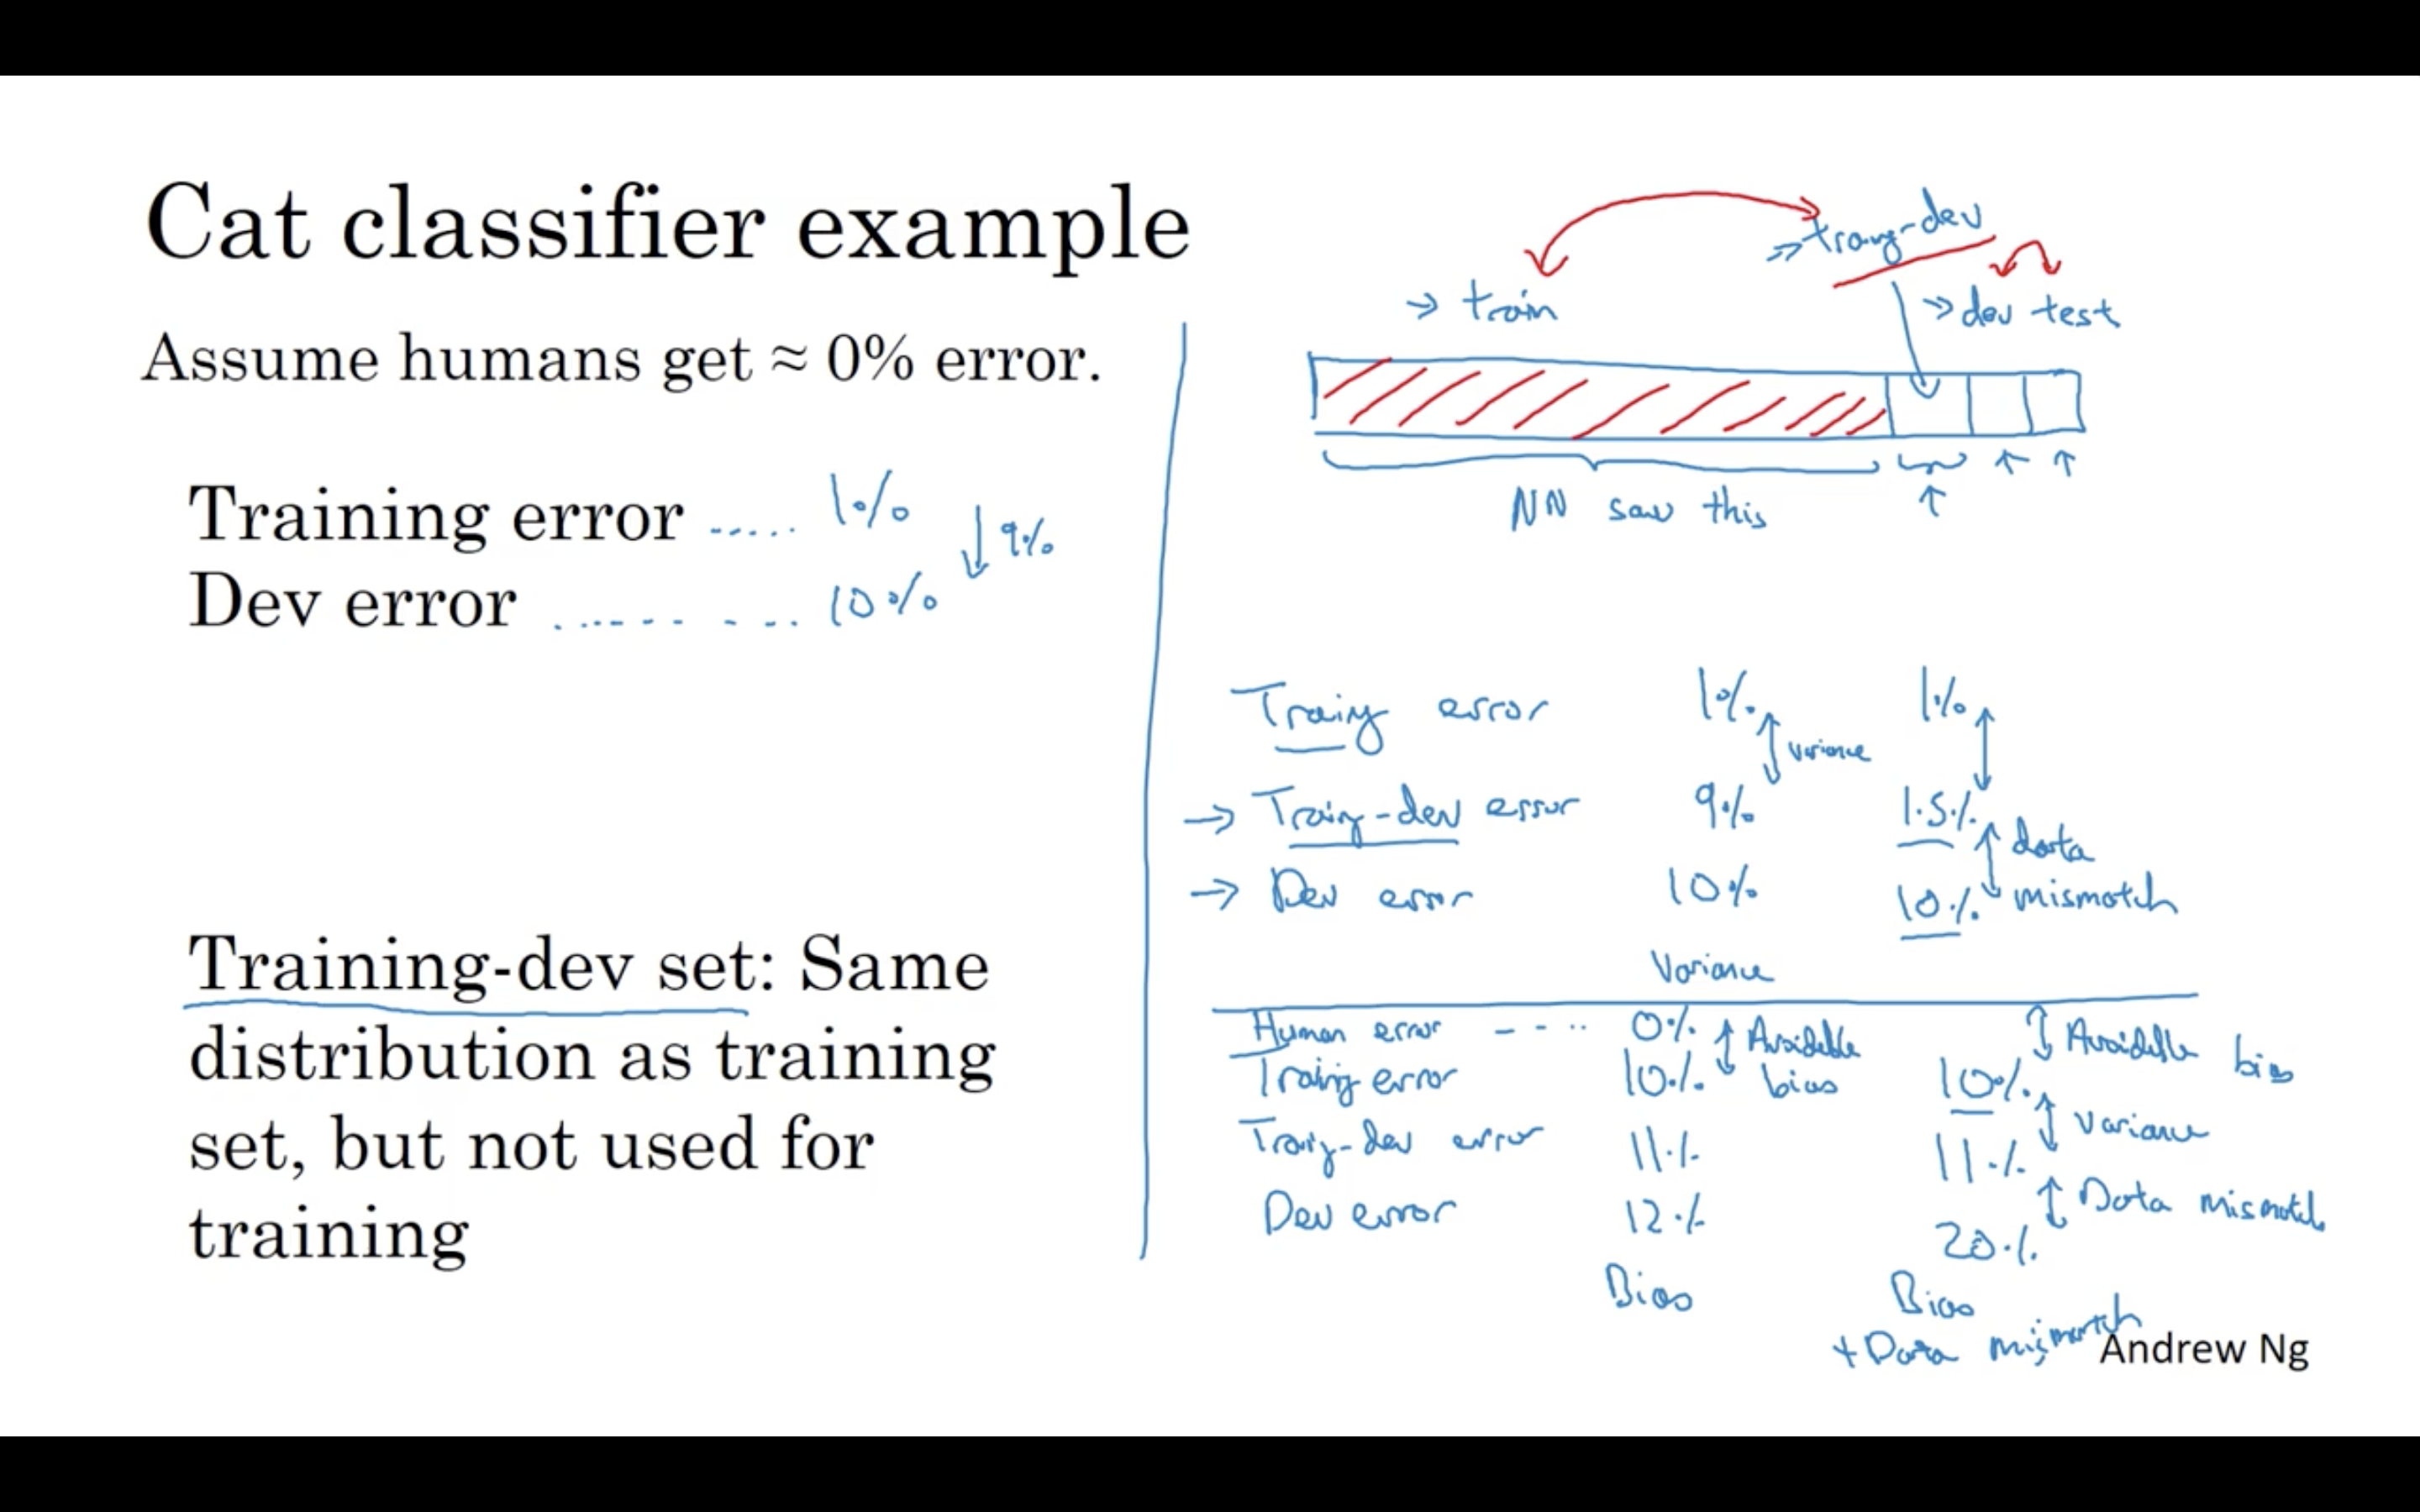 Cat classifier example
Assume humans get ≈ 0% error.
Training error ..... 1%
↓ 9%
Dev error ......... 10%
Training-dev set: Same
distribution as training
set, but not used for
training
→ train
⇒ traing-dev
⇒ dev test
NN saw this
Traing error 1% 1%
variance
→ Traing-dev error 9% 1.5%
data
mismatch
→ Dev error 10% 10%
Variance
Human error ---- 0%
Avoidable
bias
Avoidable bias
Traing error 10% 10%
Variance
Traing-dev error 11% 11%
Data mismatch
Dev error 12% 20%
Bias
Bias
+ Data mismatch
Andrew Ng